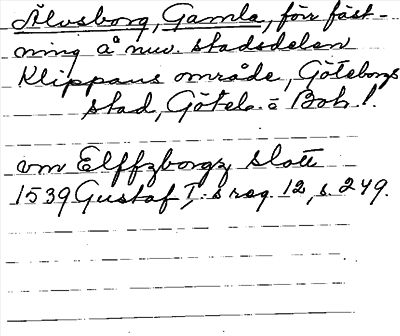 Älvsborg, Gamla, förr fäst-
ning å nuv. stadsdelen
Klippans område, Göteborgs
stad, Göteb. o Boh. l.
om Elffzborgz slott
1539 Gustaf I:s reg. 12, s. 249.